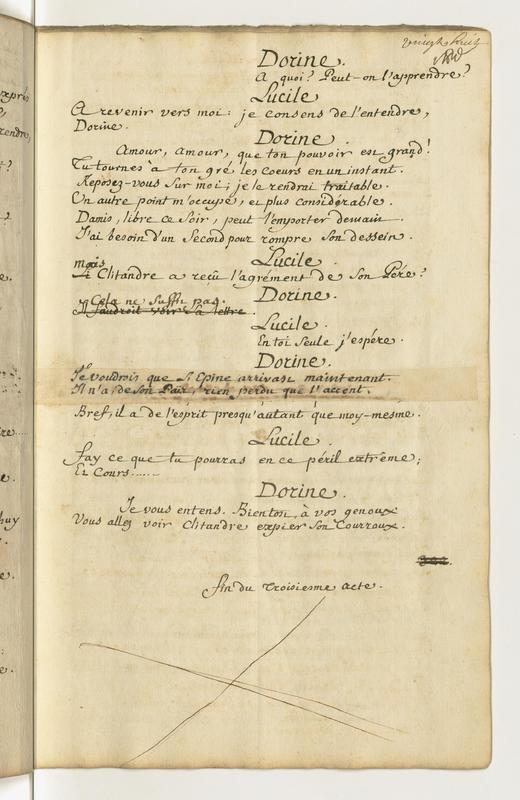 vingt huit
Dorine.
A quoi? Peut-on l'apprendre?
Lucile
A revenir vers moi: je consens de l'entendre,
Dorine.
Dorine.
Amour, amour, que ton pouvoir est grand!
Tu tournes à ton gré les coeurs en un instant.
Reposez-vous sur moi; je le rendrai traitable.
Un autre point m'occupe, et plus considérable.
Damis, libre ce soir, peut l'emporter demain
J'ai besoin d'un Second pour rompre son dessein.
Lucile.
mais
Clitandre a reçu l'agrément de son Pére?
Dorine.
Cela ne suffit pas.
Il faudroit voir sa lettre.
Lucile.
En toi seule j'espére.
Dorine.
Je voudrois que St Epine arrivast maintenant.
Il n'a, de son Païs, rien perdu que l'accent.
Bref, il a de l'esprit presqu'autant que moy-mesme.
Lucile.
fay ce que tu pourras en ce péril extrême;
Et Cours......
Dorine.
Je vous entens. Bientost, à vos genoux
Vous allez voir Clitandre expier son Courroux.
fin du Troisiesme acte.